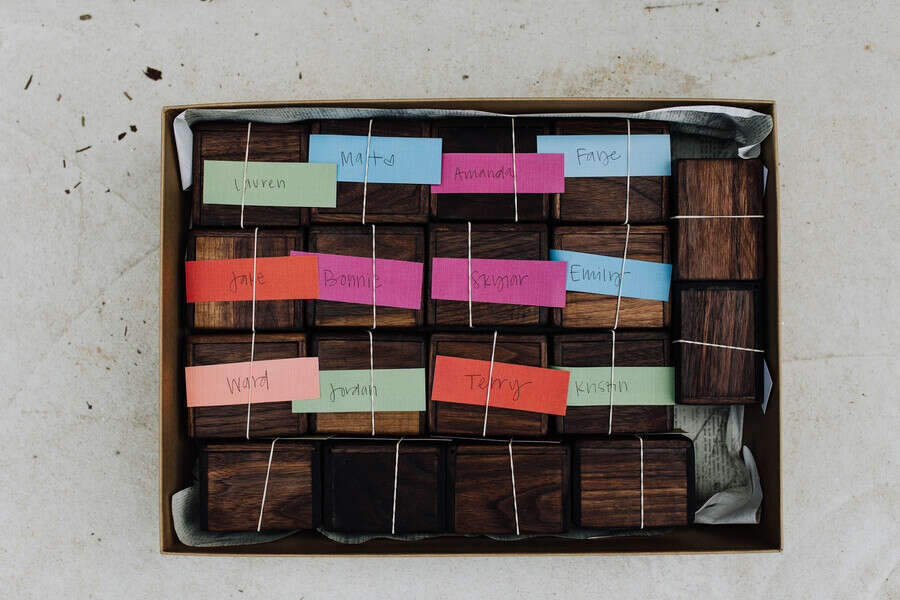 Lauren
Matt♡
Amanda
Faye
Jake
Bonnie
Skylar
Emily
Ward
Jordan
Terry
Kristin